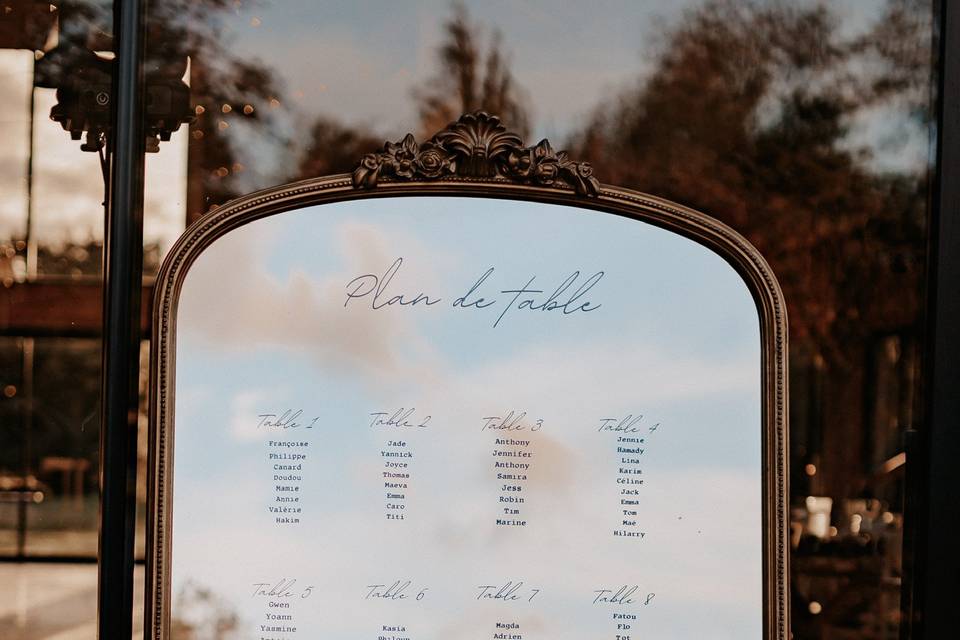 Plan de table
Table 1
Françoise
Philippe
Canard
Doudou
Mamie
Annie
Valérie
Hakim
Table 2
Jade
Yannick
Joyce
Thomas
Maeva
Emma
Caro
Titi
Table 3
Anthony
Jennifer
Anthony
Samira
Jess
Robin
Tim
Marine
Table 4
Jennie
Hamady
Lina
Karim
Céline
Jack
Emma
Tom
Maé
Hilarry
Table 5
Gwen
Yoann
Yasmine
Table 6
Kasia
Table 7
Magda
Adrien
Table 8
Fatou
Flo
Tot